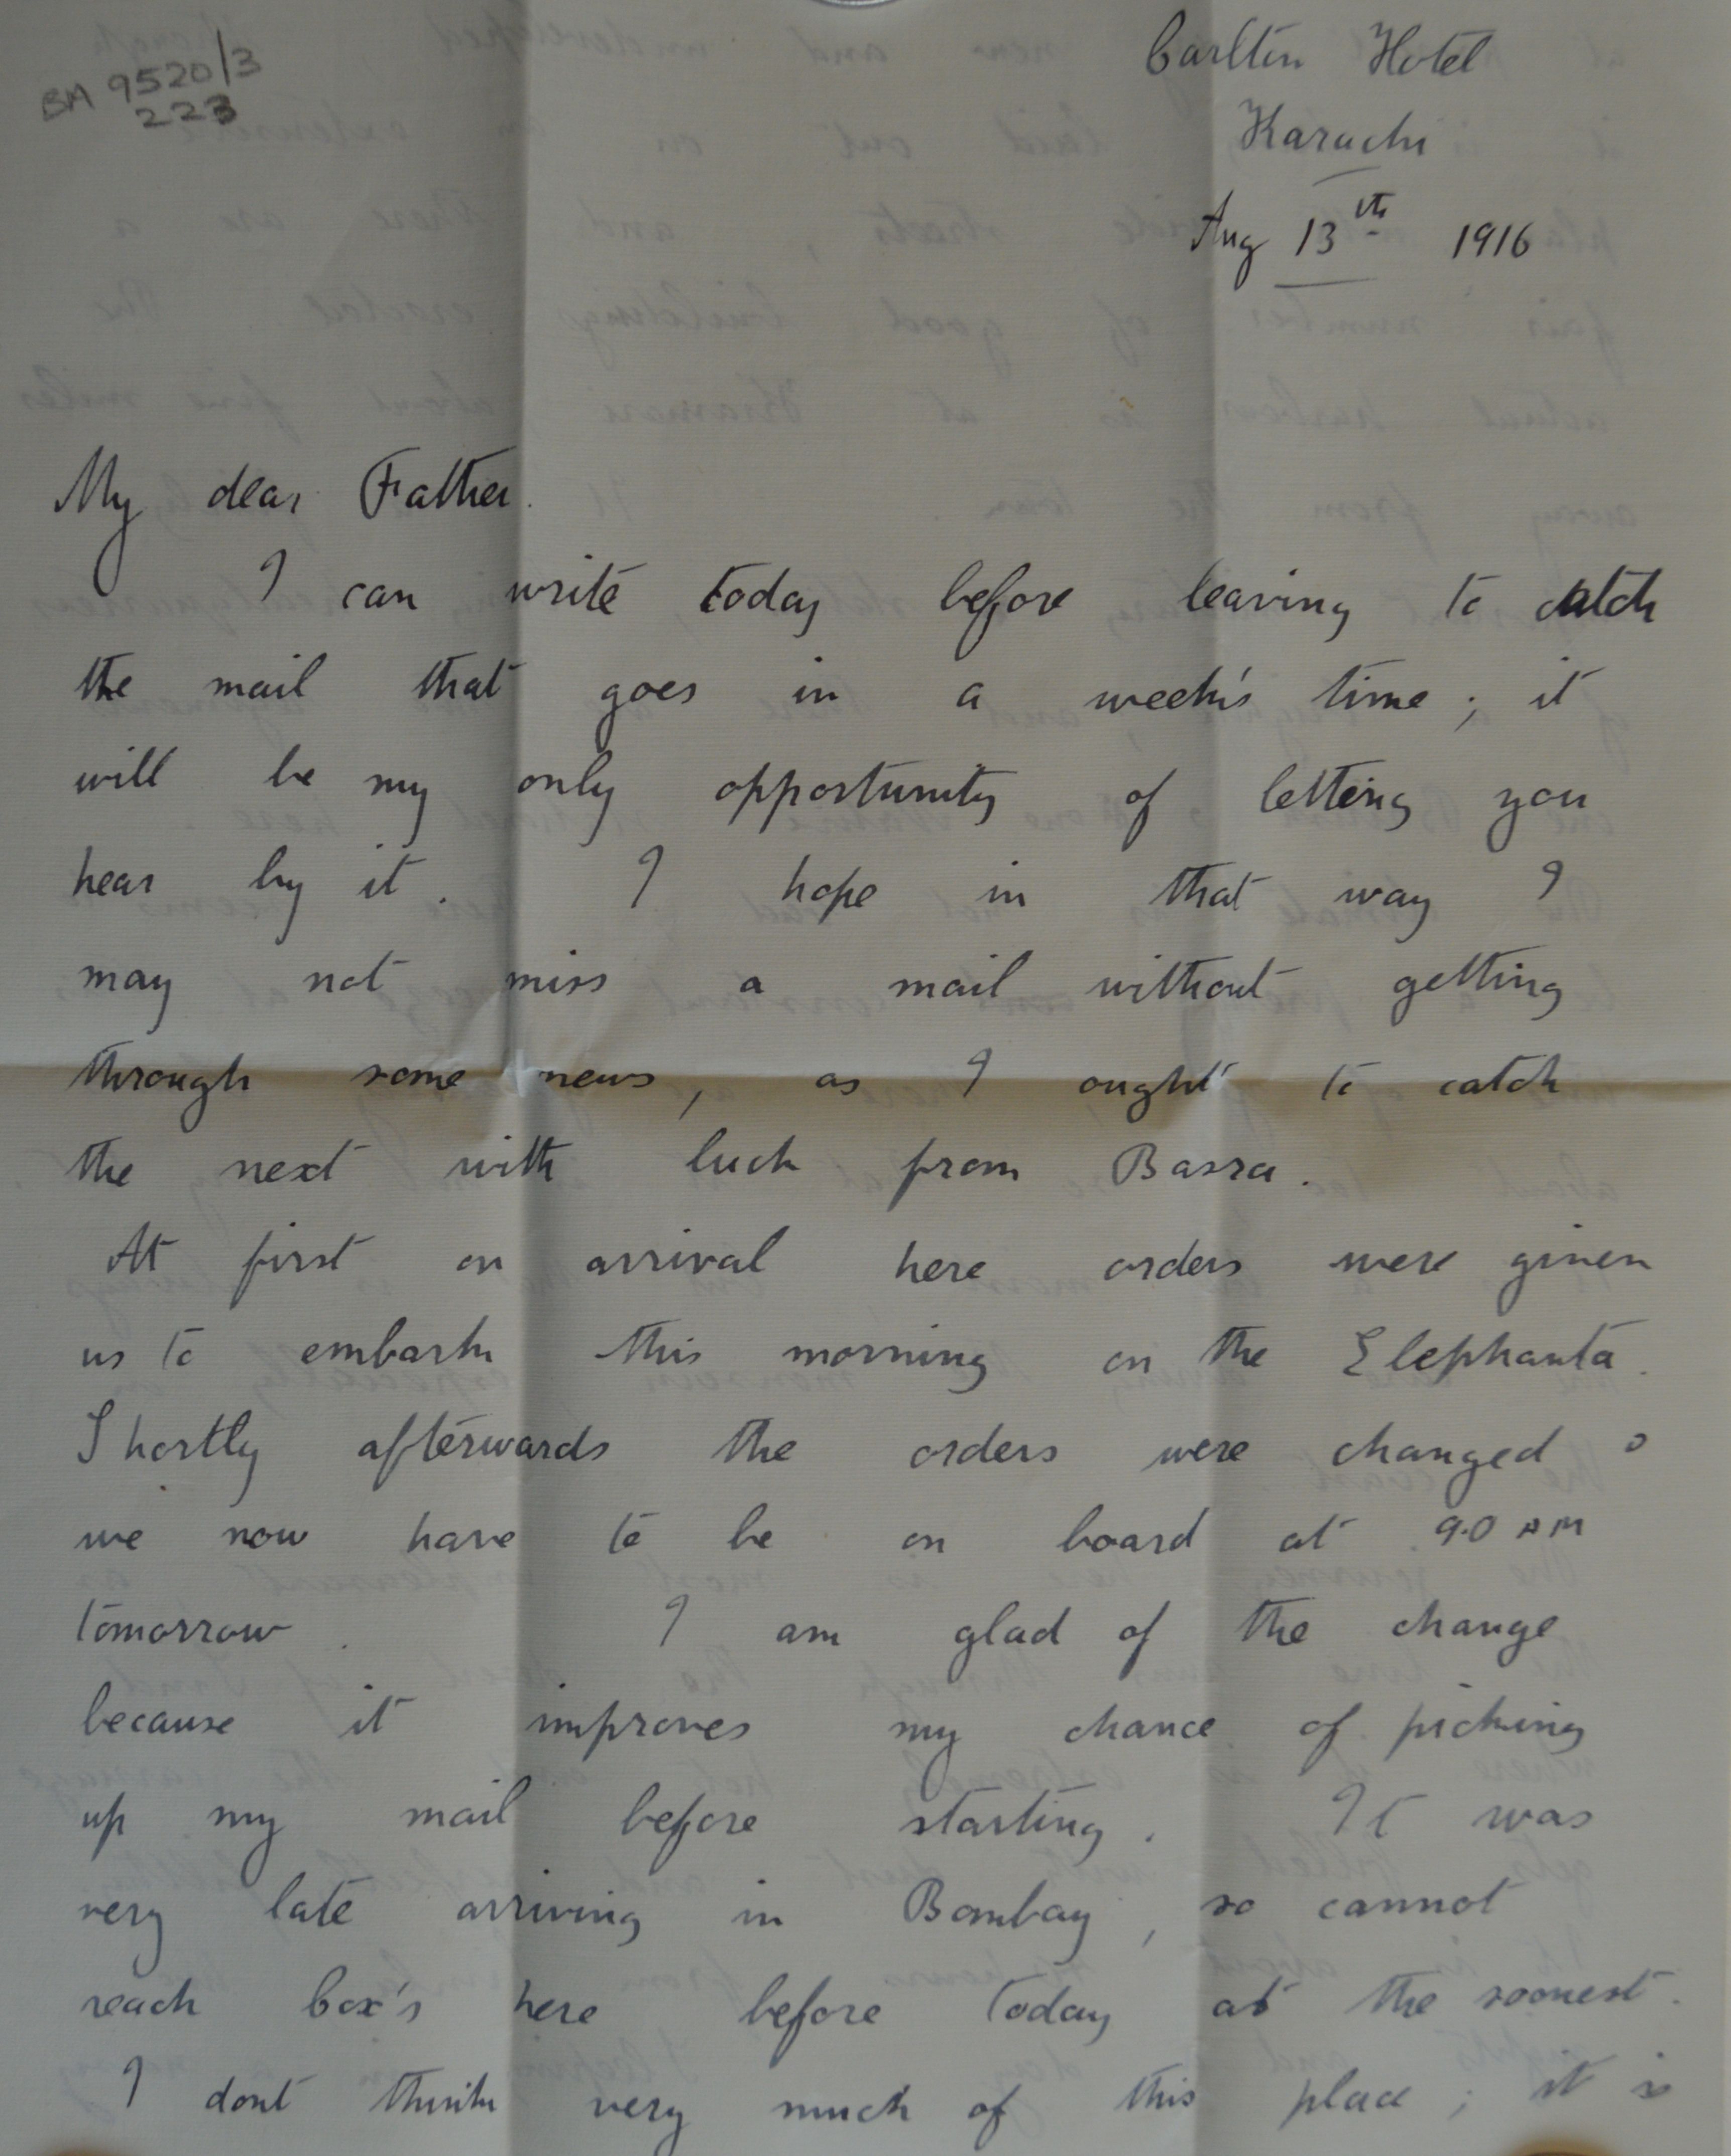 BM 9520/3
223
Carlton Hotel
Karachi
Aug 13th 1916
My dear Father.
I can write today before leaving to catch
the mail that goes in a week's time ; it
will be my only opportunity of letting you
hear by it . I hope in that way I
may not miss a mail without getting
through some news, as I ought to catch
the next with luck from Basra .
At first on arrival here orders were given
us to embark this morning on the Elephanta .
Shortly afterwards the orders were changed &
we now have to be on board at 9.0 AM
tomorrow . I am glad of the change
because it improves my chance of picking
up my mail before starting . It was
very late arriving in Bombay , so cannot
reach Cox's here before today at the soonest .
I dont think very much of this place ; it is